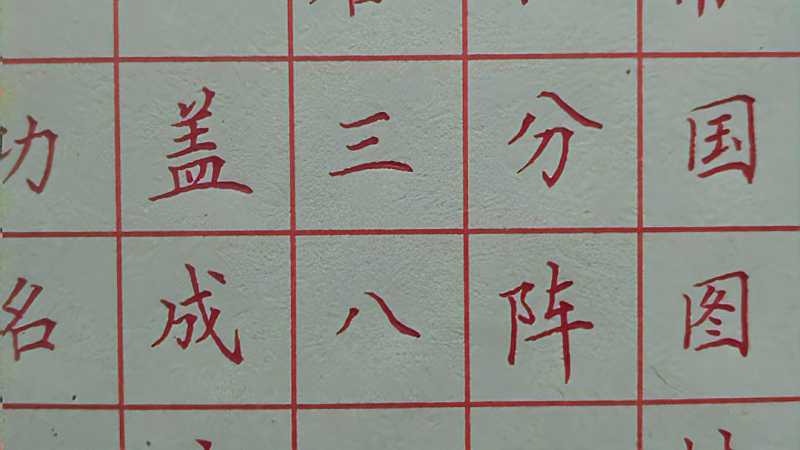 功盖三分国
名成八阵图